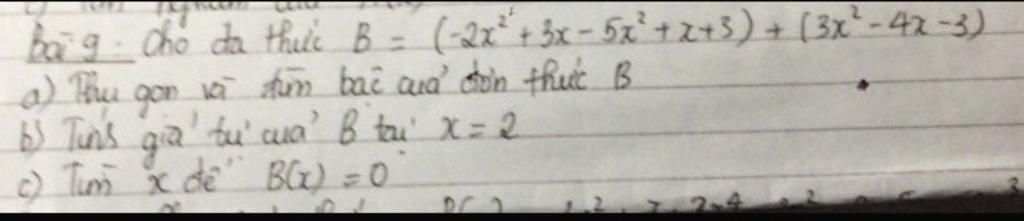 bài 9: Cho đa thức B = (-2x² + 3x - 5x² + x + 3) + (3x² - 4x - 3)
a) Thu gọn và tìm bậc của đơn thức B
b) Tính giá trị của B tại x = 2
c) Tìm x để B(x) = 0